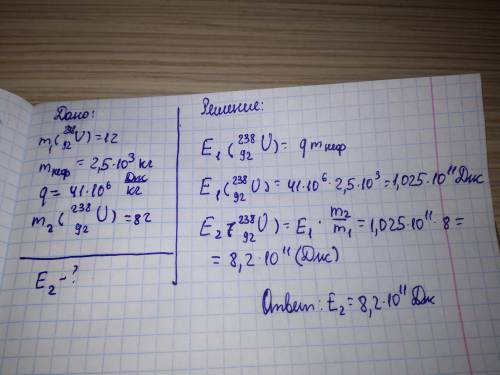 Дано:
m₁(²³⁸₉₂U)=1г
mнеф = 2,5·10³ кг
q = 41·10⁶ Дж/кг
m₂(²³⁸₉₂U)=8г
E₂ – ?
Решение:
E₁(²³⁸₉₂U)= q mнеф
E₁(²³⁸₉₂U)=41·10⁶·2,5·10³=1,025·10¹¹Дж
E₂(²³⁸₉₂U)=E₁·m₂/m₁=1,025·10¹¹·8=
=8,2·10¹¹(Дж)
Ответ: E₂=8,2·10¹¹Дж